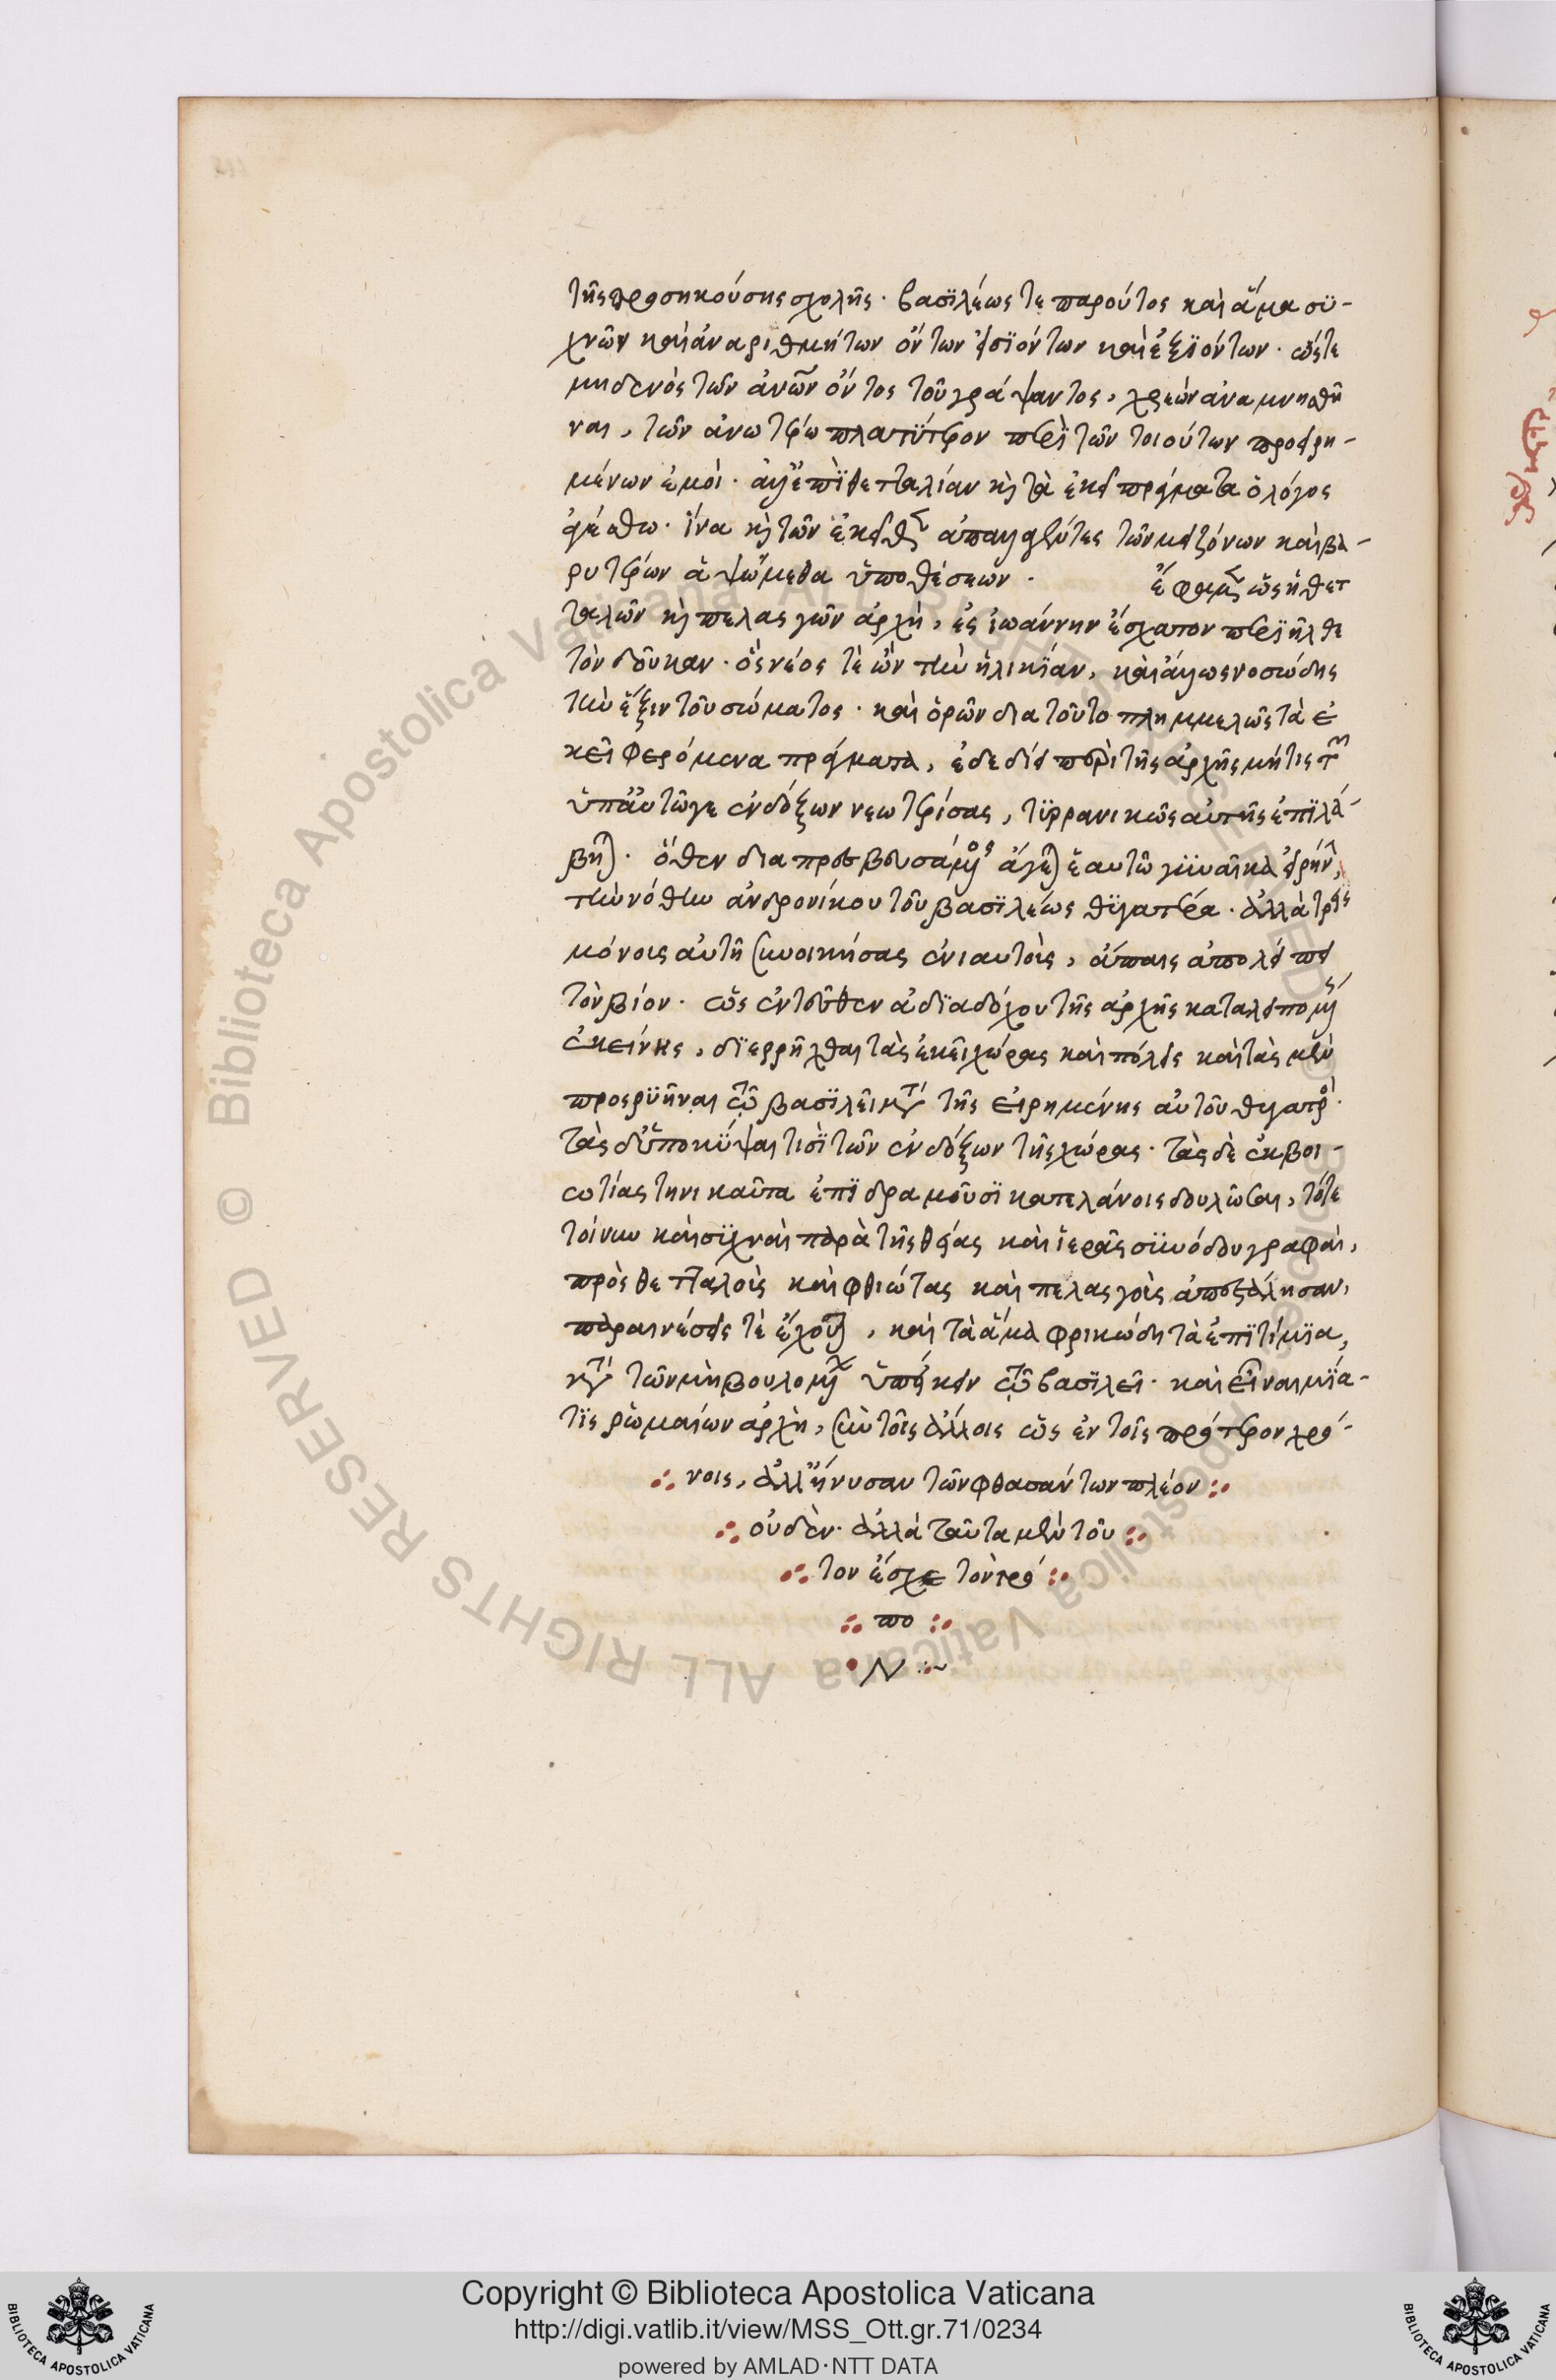 τῆς προσηκούσης σχολῆς· βασϊλέως τε παρόντος καὶ ἅμα σϋ-
χνῶν καὶ ἀναριθμήτων ὄντων εἰσϊόντων καὶ ἐξϊόντων· ὥστε
μηδενὸς τῶν ἀνῶν ὄντος τοῦ γράψαντος, χρεὼν ἀναμνησθῆ
ναι, τῶν ἀνωτέρω πλατϋτερον περὶ τῶν τοιούτων προειρη-
μένων ἐμοί· ἀλλ' ἐπϊ θετταλίαν καὶ τὰ ἐκεῖ πράγματα ὁ λόγος
ἀγέσθω· ἵνα καὶ τῶν ἐκεῖθεν ἀπαλλαγέντες τῶν μειζόνων καὶ βα-
ρυτέρων ἁψώμεθα ὑποθέσεων· ἔφαμεν ὡς ἡ θετ
ταλῶν καὶ πελασγῶν ἀρχὴ, ἐς ἰωάννην ἔσχατον περϊῆλθε
τὸν δοῦκαν· ὃς νέος τὲ ὢν τὴν ἡλικϊαν, καὶ ἄλλως νοσώδης
τὴν ἕξιν τοῦ σώματος· καὶ ὁρῶν δια τοῦτο πλημμελῶς τὰ ἐ
κεῖ φερόμενα πράγματα, ἐδεδίει περὶ τῆς ἀρχῆς μήτις τῶν
ὑπ' αὐτῶ γε ἐνδόξων νεωτερίσας, τϋρρανικῶς αὐτῆς ἐπϊλά-
βηται· ὅθεν διαπρεσβευσάμενος ἄγεται ἑαυτῶ γϋναῖκα εἰρήνην,
τὴν νόθην ἀνδρονίκου τοῦ βασϊλέως θϋγατέρα· ἀλλὰ τρισὶ
μόνοις αὐτῆ συνοικήσας ἐνιαυτοῖς, ἄπαις ἀπολείπει
τὸν βίον· ὡς ἐντεῦθεν ἀδϊαδόχου τῆς ἀρχῆς καταλειπομένης
ἐκείνης, δϊερρῆχθαι τὰς ἐκεῖ χώρας καὶ πόλεις καὶ τὰς μὲν
προσρϋῆναι τῶ βασϊλεῖ μετὰ τῆς εἰρημένης αὐτοῦ θυγατρός·
τὰς δ' ὑποκϋψαι τισϊ τῶν ἐνδόξων τῆς χώρας· τὰς δὲ ἐκ βοι-
ωτίας τηνικαῦτα ἐπϊδραμοῦσϊ κατελάνοις δουλῶσαι, τότε
τοίνυν καὶ σϋχναὶ παρὰ τῆς θείας καὶ ἱερᾶς σϋνόδου γραφαὶ,
πρὸς θετταλοὺς καὶ φθιώτας καὶ πελασγοὺς ἀπεστάλησαν,
παραινέσεις τὲ ἔχουσαι, καὶ τὰ ἅμα φρικώδη τὰ ἐπϊτίμϊα,
κατὰ τῶν μὴ βουλομένων ὑπείκειν τῶ βασϊλεῖ· καὶ εἶναι μϊά-
τϊς ῥωμαίων ἀρχὴ, σὺν τοῖς ἄλλοις ὡς ἐν τοῖς πρότερον χρό-
νοις, ἀλλ' ἤνυσαν τῶν φθασάντων πλέον
οὐδὲν· ἀλλὰ ταῦτα μὲν τοῦ
τον ἔσχε τὸν τρό
πο
Ν
Copyright © Biblioteca Apostolica Vaticana
http://digi.vatlib.it/view/MSS_Ott.gr.71/0234
powered by AMLAD·NTT DATA
BIBLIOTECA APOSTOLICA VATICANA
BIBLIOTECA APOSTOLICA VATICANA
© Biblioteca Apostolica Vaticana ALL RIGHTS RESERVED